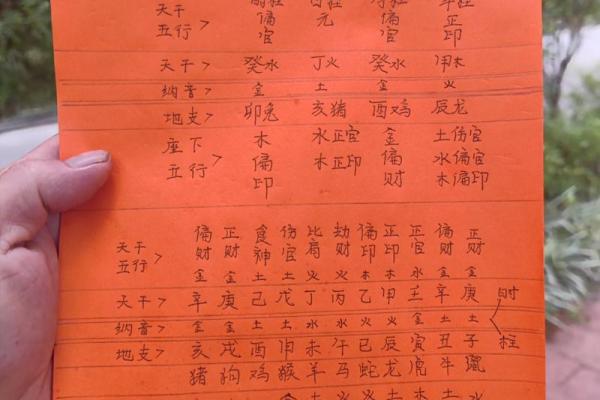 天干 五行 > 偏官 元 偏官 正印
天干 > 癸水 丁火 癸水 甲木
纳音 > 金 土 金 火
地支 > 卯兔 亥猪 酉鸡 辰龙
座下 五行 > 木 水正官 金 土伤官
偏 木正印 偏 水偏官
印 财 木偏印
天干 五行 > 偏财 正财 食神 伤官 比肩 劫财 偏印 正印 正官 偏财 正财
金 金 土 土 火 火 木 木 水 金 金
天干 > 辛 庚 己 戊 丁 丙 乙 甲 壬 辛 庚 时
纳音 > 金 金 土 土 水 水 火 火 金 土 土
地支 > 亥 戌 酉 申 未 午 巳 辰 寅 丑 子 柱
猪 狗 鸡 猴 羊 马 蛇 龙 虎 牛 鼠
金 土 火 火 土 木 土 水